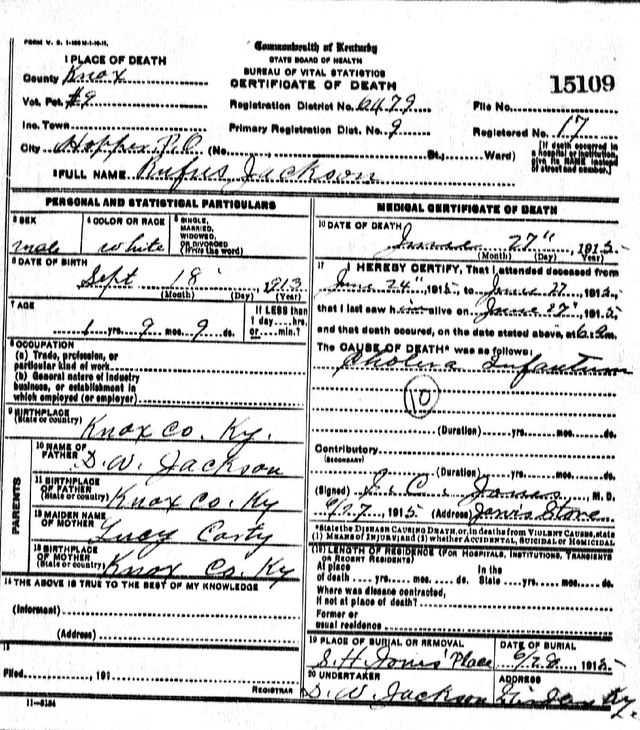 Commonwealth of Kentucky
STATE BOARD OF HEALTH
BUREAU OF VITAL STATISTICS
CERTIFICATE OF DEATH
15109
1 PLACE OF DEATH
County Knox
Vot. Pct. #9
Registration District No. 6479
File No.
Inc. Town
Primary Registration Dist. No. 9
Registered No. 17
City Hopper P.O. (No. St., Ward)
[If death occurred in a hospital or institution, give its NAME instead of street and number.]
2 FULL NAME Rufus Jackson
PERSONAL AND STATISTICAL PARTICULARS
3 SEX
male
4 COLOR OR RACE
White
5 SINGLE, MARRIED, WIDOWED, OR DIVORCED (Write the word)
6 DATE OF BIRTH
Sept 18 1913
(Month) (Day) (Year)
7 AGE
1 yrs. 9 mos. 9 ds.
If LESS than 1 day....hrs. or....min.?
8 OCCUPATION
(a) Trade, profession, or particular kind of work
(b) General nature of industry business, or establishment in which employed (or employer)
9 BIRTHPLACE
(State or country)
Knox Co. Ky.
PARENTS
10 NAME OF FATHER
D. W. Jackson
11 BIRTHPLACE OF FATHER
(State or country)
Knox Co. Ky
12 MAIDEN NAME OF MOTHER
Lucy Carty
13 BIRTHPLACE OF MOTHER
(State or country)
Knox Co. Ky
14 THE ABOVE IS TRUE TO THE BEST OF MY KNOWLEDGE
(Informant)
(Address)
15
Filed, 191
REGISTRAR
11-3184
MEDICAL CERTIFICATE OF DEATH
16 DATE OF DEATH
June 27" 1915
(Month) (Day) (Year)
17 I HEREBY CERTIFY, That I attended deceased from
June 24" 1915, to June 27 1915,
that I last saw him alive on June 27" 1915,
and that death occured, on the date stated above, at 6
The CAUSE OF DEATH* was as follows:
Cholera Infantum
10
(Duration) yrs. mos. ds.
Contributory
(SECONDARY)
(Duration) yrs. mos. ds.
(Signed) J. C. Jones, M. D.
6/27 1915 (Address) Jarvis Store
*State the DISEASE CAUSING DEATH, or, in deaths from VIOLENT CAUSES, state (1) MEANS OF INJURY; and (2) whether ACCIDENTAL, SUICIDAL or HOMICIDAL
(18) LENGTH OF RESIDENCE (FOR HOSPITALS, INSTITUTIONS, TRANSIENTS OR RECENT RESIDENTS)
At place of death yrs. mos. ds.
In the State yrs. mos. ds.
Where was disease contracted, if not at place of death?
Former or usual residence
19 PLACE OF BURIAL OR REMOVAL
S. H. Jones' Place
DATE OF BURIAL
6/28, 1915
20 UNDERTAKER
D. W. Jackson
ADDRESS
Ky.